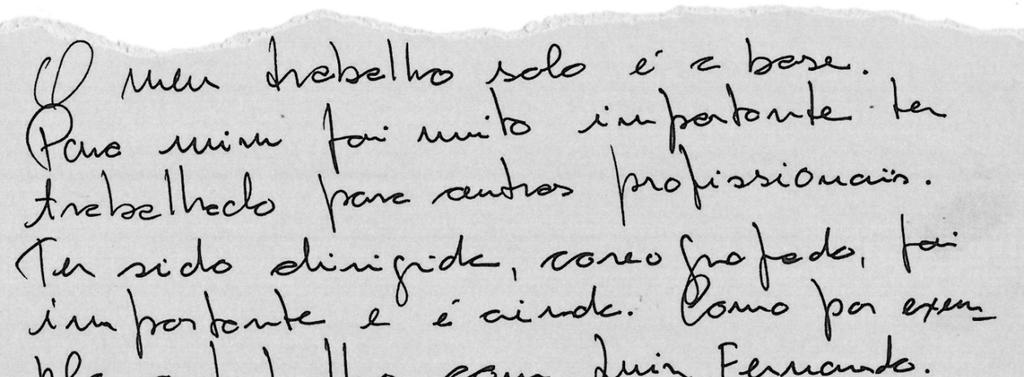 O meu trabalho solo é a base.
Para mim foi muito importante ter
trabalhado para outros profissionais.
Ter sido dirigida, coreografada, foi
importante e é ainda. Como por exem-
plo o trabalho com Luiz Fernando.